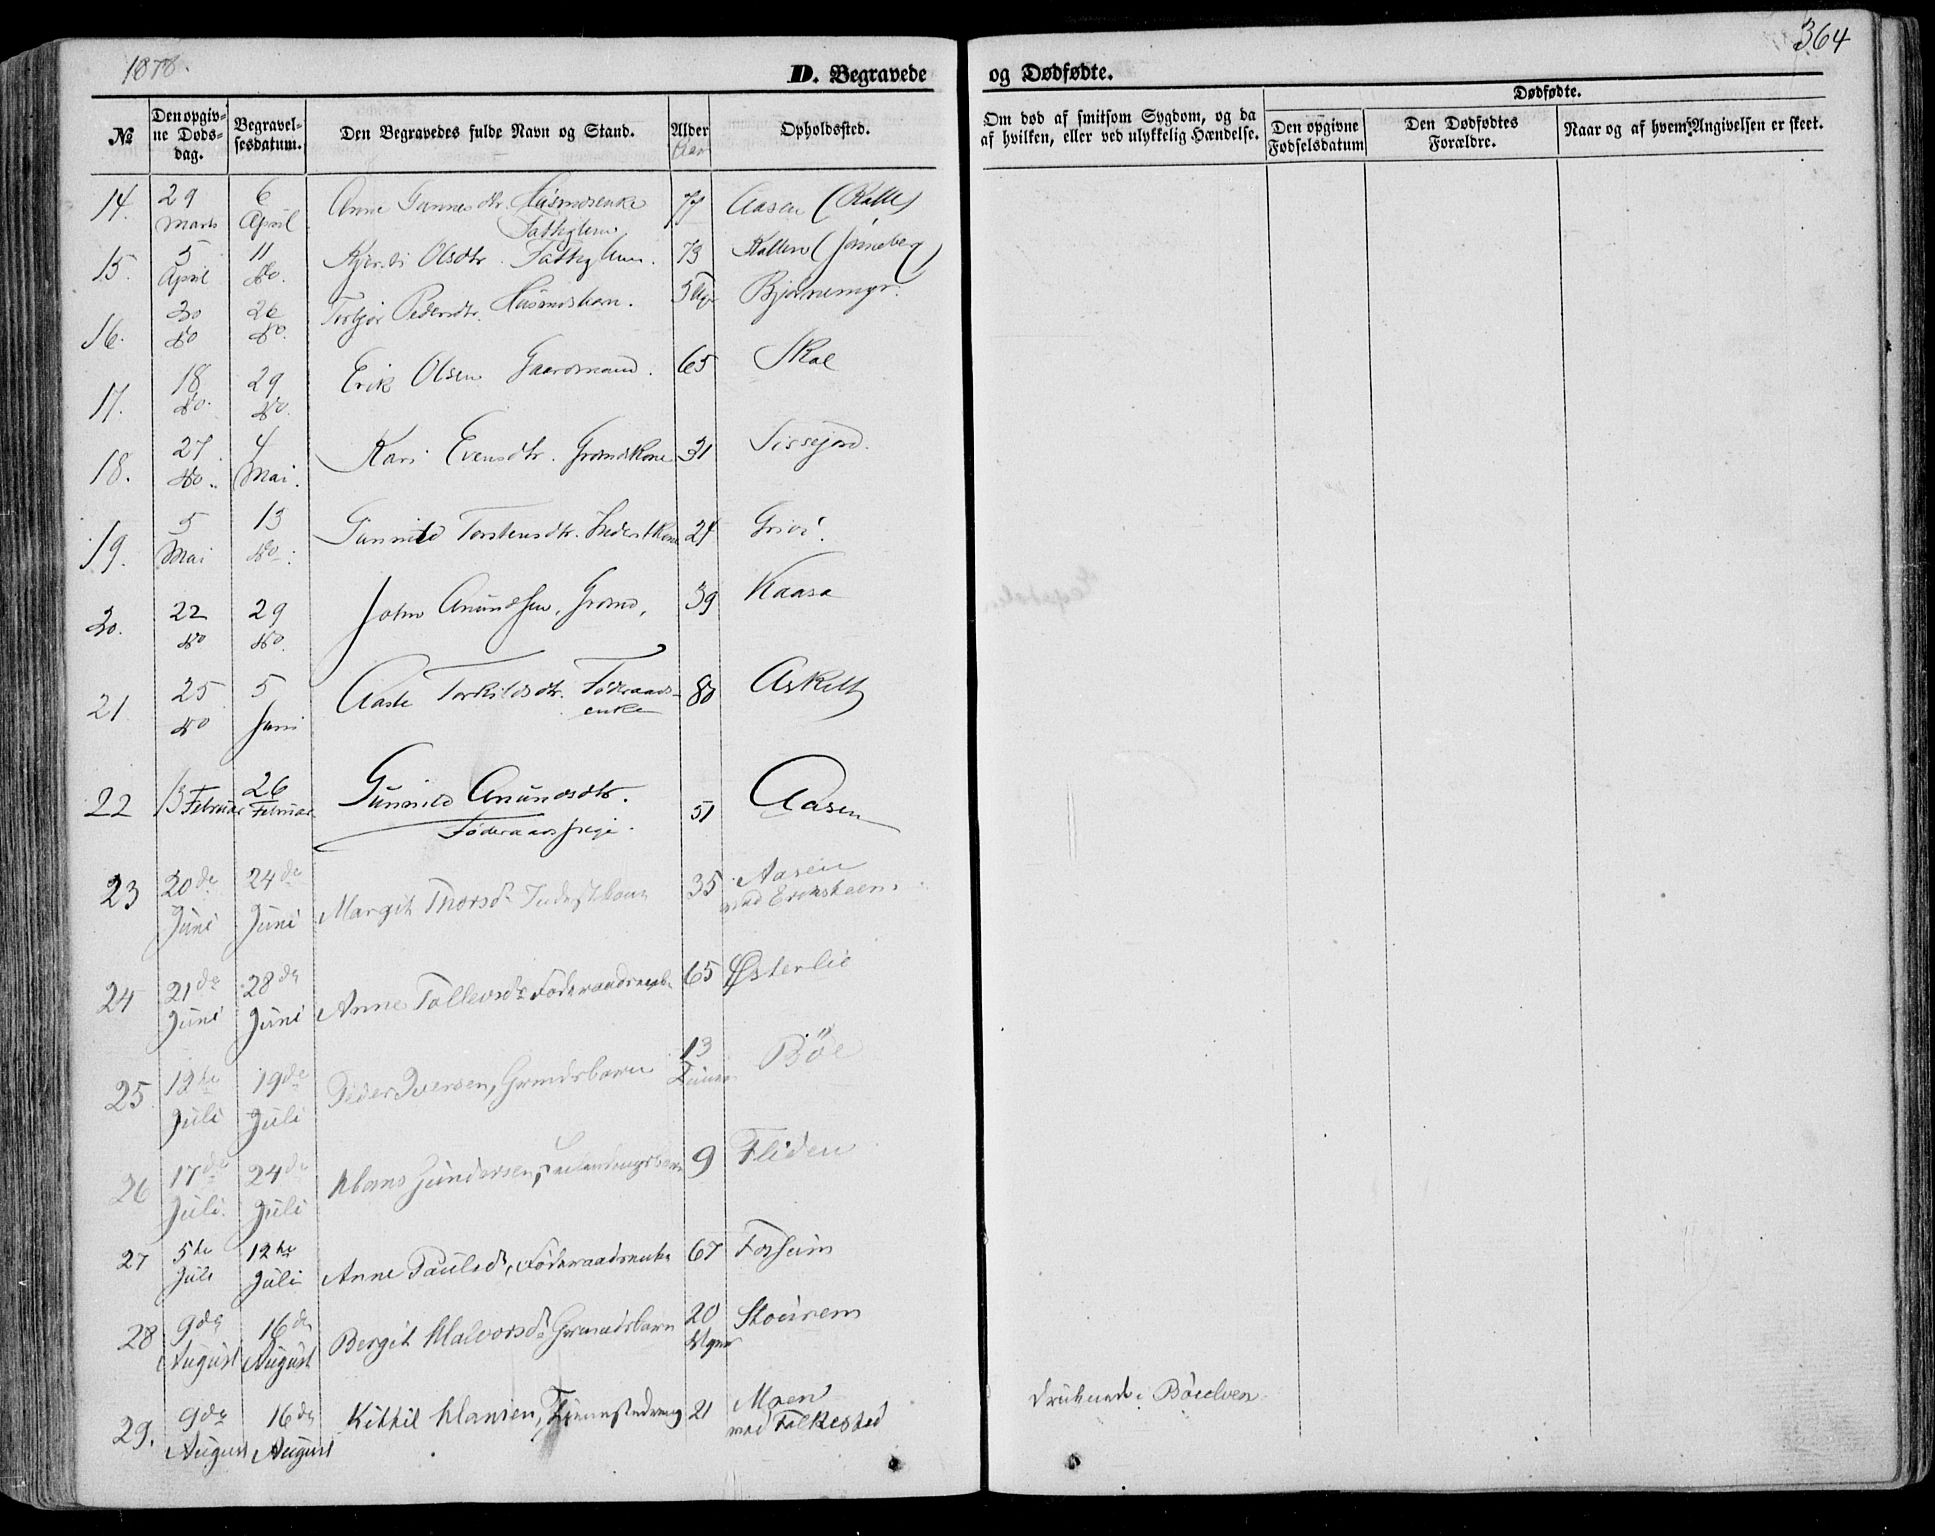 1878.
364
D. Begravede og Dødfødte.
№
Den opgivne Døds-dag.
Begravelsesdatum.
Den Begravedes fulde Navn og Stand.
Alder
Aar
Opholdssted.
Om død af smitsom Sygdom, og da af hvilken, eller ved ulykkelig Hændelse.
Dødfødte.
Den opgivne Fødselsdatum
Den Dødfødtes Forældre.
Naar og af hvem Angivelsen er skeet.
14. 29 Marts 6 April Anne Gunnesdtr. Husmdsenke Fattiglem. 77 Aasen
15. 5 April 11 do. Kjersti Olsdtr. Fattiglem. 73
16. 20 do 26 do. Torbjør Pedersdtr. Husmdsbarn. Bjørnemyr.
17. 18 do. 29 do. Erik Olsen Gaardmand. 65 Skoe
18. 27 do. 4 Mai. Kari Evensdtr. Grmdskone 31 Sissejord.
19. 5 Mai 13 do. Gunnild Torstensdtr. Inderstkone 24 Grivi.
20. 22 do 29 do. John Anundsen, Grmd, 39 Kaasa
21. 25 do 5 Juni Aaste Torkildsdtr. Føderaadsenke 80 Askilt
22 13 Februar 26 Februar Gunnild Anundsdtr. Føderaadspige. 51 Aasen
23 20de Juni 24de Juni Margit Thorsdr 35 Aasen
24 21de Juni 28de Juni Anne Tallevsdr Føderaadsenke 65 Østerlie
25 12te Juli 19de Juli Peder Iversen, Grmdsbarn 13 Timer Bøe
26 17de Juli. 24de Juli Hans Gundersen, 9 Fliden
27 5te Juli 12te Juli Anne Paulsdr, Føderaadsenke 67 Forseim
28 9de August 16de August Bergit Halvorsdr Grmndsbarn 20 Uger
29. 9de August 16de August Kittil Hansen, Tjenestedreng 21 Moen ved Folkestad Druknede i Bøeelven